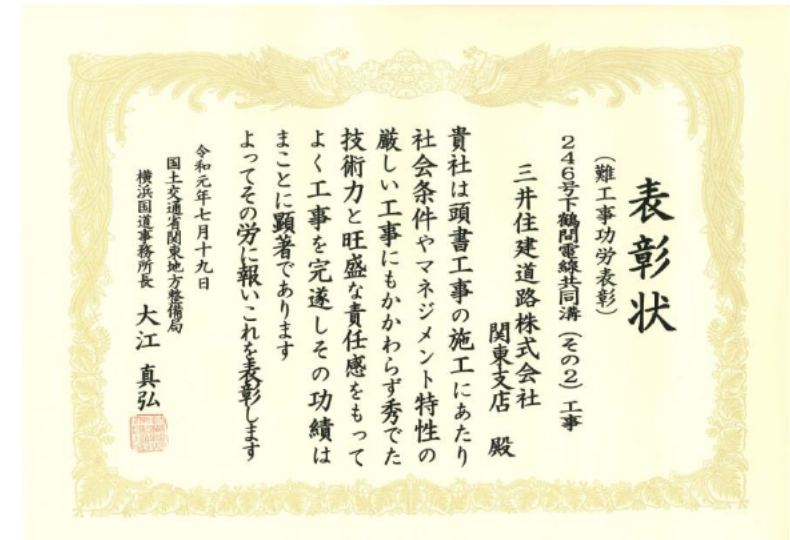 表彰状
（難工事功労表彰）
246号下鶴間電線共同溝（その2）工事
三井住建道路株式会社
関東支店 殿
貴社は頭書工事の施工にあたり
社会条件やマネジメント特性の
厳しい工事にもかかわらず秀でた
技術力と旺盛な責任感をもって
よく工事を完遂しその功績は
まことに顕著であります
よってその労に報いこれを表彰します
令和元年七月十九日
国土交通省関東地方整備局
横浜国道事務所長 大江 真弘